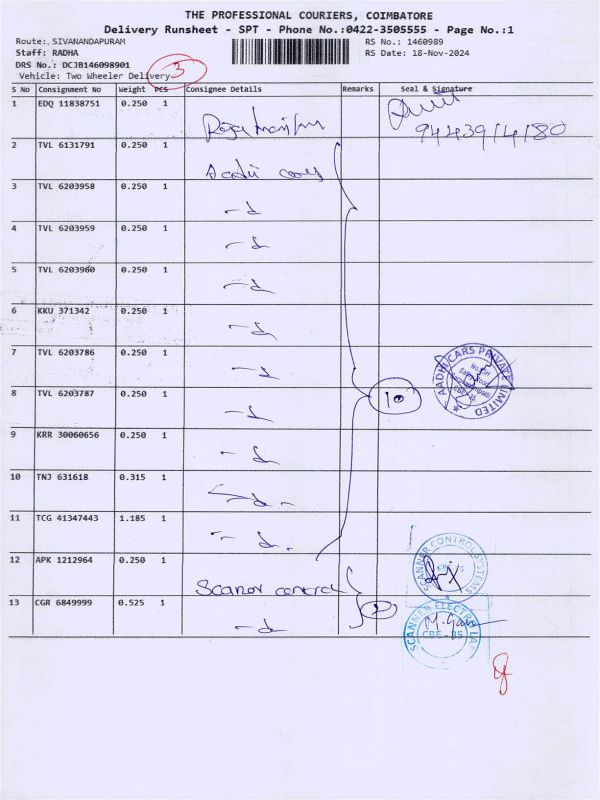 THE PROFESSIONAL COURIERS, COIMBATORE
Delivery Runsheet - SPT - Phone No.:0422-3505555 - Page No.:1
Route: SIVANANDAPURAM
RS No.: 1460989
Staff: RADHA
RS Date: 18-Nov-2024
DRS No.: DCJB146098901
Vehicle: Two Wheeler Delivery
3
S No Consignment No Weight PCS Consignee Details Remarks Seal & Signature
1 EDQ 11838751 0.250 1
9443914180
2 TVL 6131791 0.250 1 Aadhi cars
3 TVL 6203958 0.250 1 -d
4 TVL 6203959 0.250 1 -d
5 TVL 6203960 0.250 1 -d
6 KKU 371342 0.250 1 -d
7 TVL 6203786 0.250 1 -d
8 TVL 6203787 0.250 1 -d
10
AADHI CARS PRIVATE LIMITED
9 KRR 30060656 0.250 1 -d
10 TNJ 631618 0.315 1 -d-
11 TCG 41347443 1.185 1 -d.
12 APK 1212964 0.250 1 Scanor control
SCANNER CONTROL SYSTEMS
13 CGR 6849999 0.525 1 -d
2
SCANNER ELECTRO LAB
CBE-35